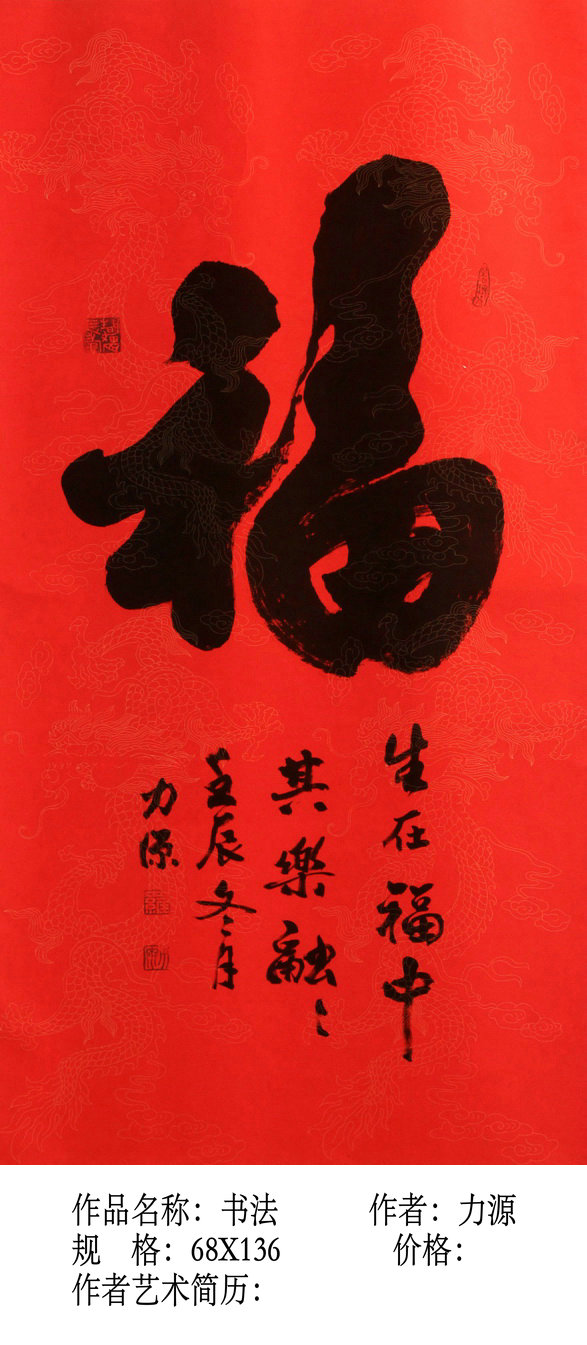 福
生在福中
其樂融〻
壬辰冬月
力源
作品名称：书法
作者：力源
规 格：68X136
价格：
作者艺术简历：